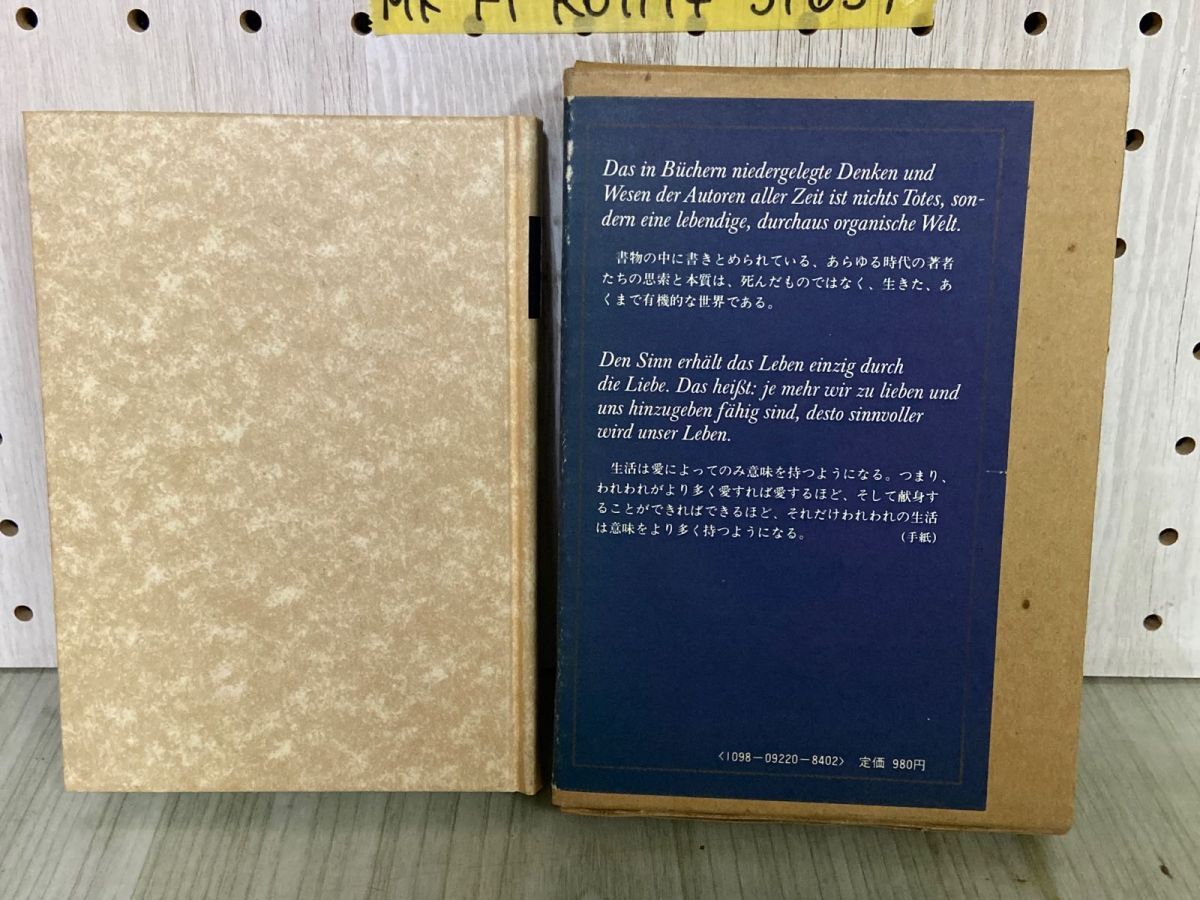 Das in Büchern niedergelegte Denken und
Wesen der Autoren aller Zeit ist nichts Totes, son-
dern eine lebendige, durchaus organische Welt.
書物の中に書きとめられている、あらゆる時代の著者
たちの思索と本質は、死んだものではなく、生きた、あ
くまで有機的な世界である。
Den Sinn erhält das Leben einzig durch
die Liebe. Das heißt: je mehr wir zu lieben und
uns hinzugeben fähig sind, desto sinnvoller
wird unser Leben.
生活は愛によってのみ意味を持つようになる。つまり、
われわれがより多く愛すれば愛するほど、そして献身す
ることができればできるほど、それだけわれわれの生活
は意味をより多く持つようになる。 (手紙)
<1098-09220-8402> 定価 980円